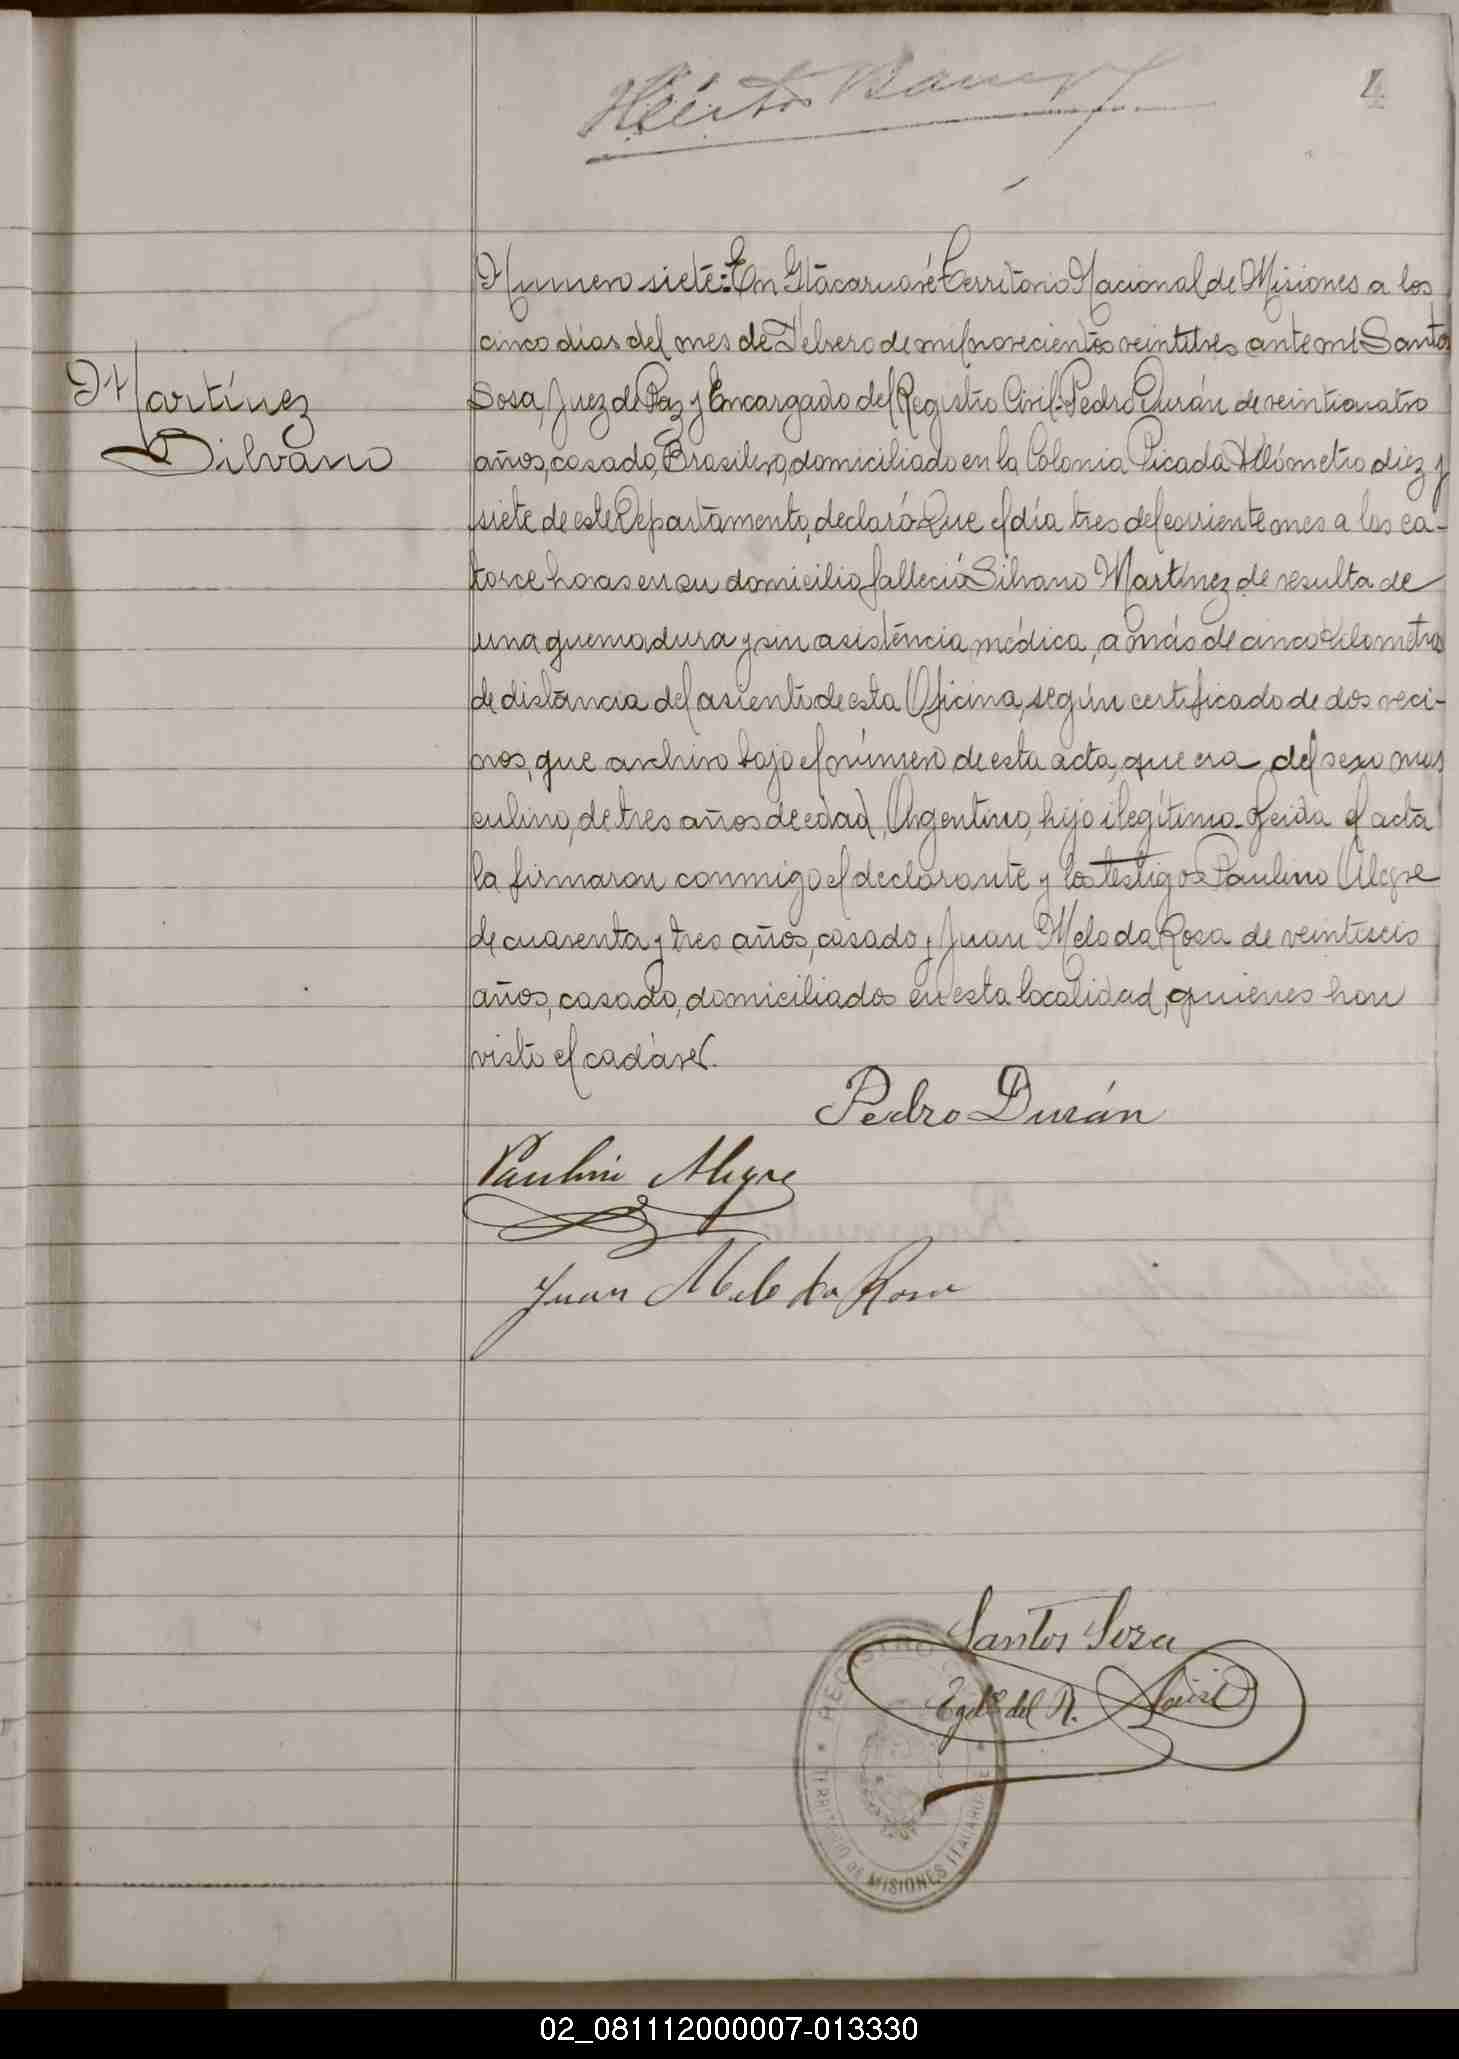 Héctor
4
Numero siete: En Itacaruaré Territorio Nacional de Misiones a los
cinco días del mes de Febrero de mil novecientos veintitres ante mi Santos
Martínez
Silvano
Sosa, Juez de Paz y Encargado del Registro Civil: Pedro Durán de veinticuatro
años, casado, Brasilero, domiciliado en la Colonia Picada Kilómetro diez y
siete de este Departamento, declaró: Que el día tres del corriente mes a las ca-
torce horas en su domicilio falleció Silvano Martínez de resulta de
una quemadura y sin asistencia médica, a más de cinco kilometros
de distancia del asiento de esta Oficina, según certificado de dos veci-
nos, que archivo bajo el número de esta acta, que era del sexo mas
culino, de tres años de edad, Argentino, hijo ilegítimo. Leida el acta
la firmaron conmigo el declarante y los testigos Paulino Alegre
de cuarenta y tres años, casado y Juan Melo da Rosa de veintiseis
años, casado, domiciliados en esta localidad, quienes han
visto el cadáver.
Pedro Durán
Paulino Alegre
Juan Melo da Rosa
Santos Sosa
Egdo del R. Civil
REGISTRO
TERRITORIO DE MISIONES ITACARUARE
02_081112000007-013330